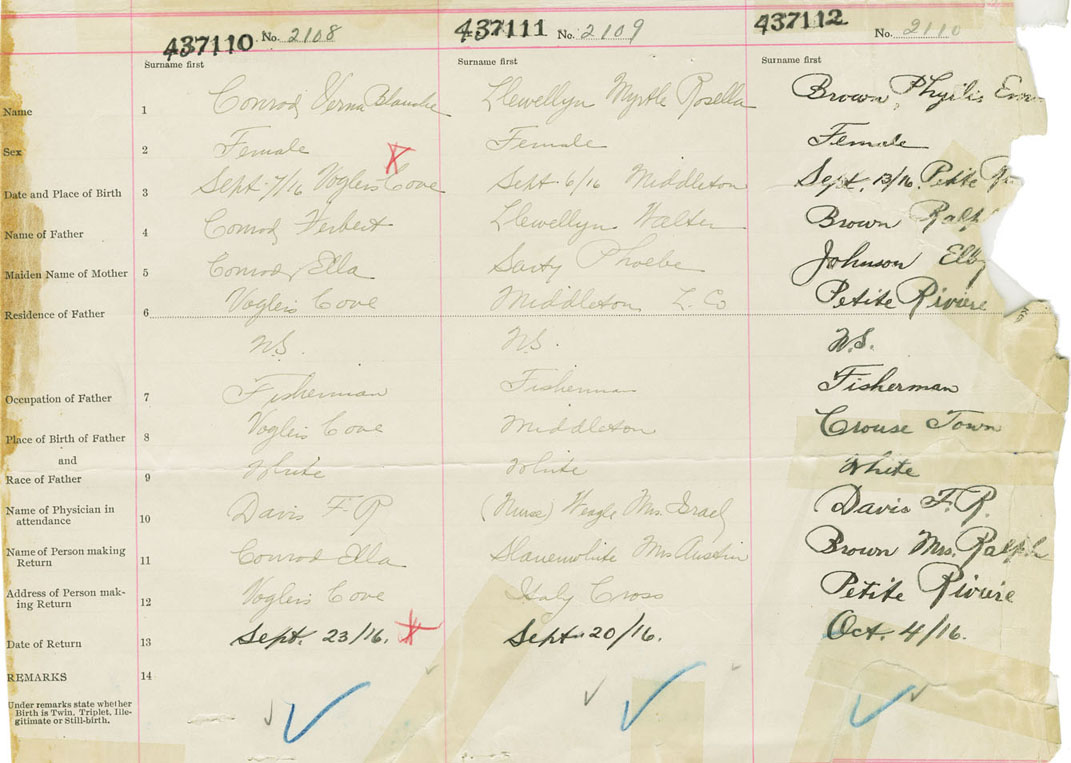 437110 No. 2108 437111 No. 2109 437112 No. 2110
Surname first Surname first Surname first
Name 1 Conrod, Verna Blanche Llewellyn Myrtle Rosella Brown, Phyllis
Sex 2 Female X Female Female
Date and Place of Birth 3 Sept. 7/16 Voglers Cove Sept 6/16 Middleton Sept. 13/16. Petite
Name of Father 4 Conrod, Herbert Llewellyn Walter Brown Ralph
Maiden Name of Mother 5 Conrod, Ella Phoebe Johnson
Residence of Father 6 Voglers Cove Middleton, L. Co Petite Riviere
N.S. N.S. N.S.
Occupation of Father 7 Fisherman Fisherman Fisherman
Place of Birth of Father 8 Voglers Cove Middleton Crouse Town
and
Race of Father 9 White White White
Name of Physician in
attendance 10 Davis F. R (Nurse) Weagle Mrs. Israel Davis F. R.
Name of Person making
Return 11 Conrod Ella Mrs Austin Brown Mrs. Ralph
Address of Person mak-
ing Return 12 Voglers Cove Italy Cross Petite Riviere
Date of Return 13 Sept. 23/16. X Sept. 20/16. Oct. 4/16.
REMARKS 14
Under remarks state whether
Birth is Twin, Triplet, Ille-
gitimate or Still-birth.